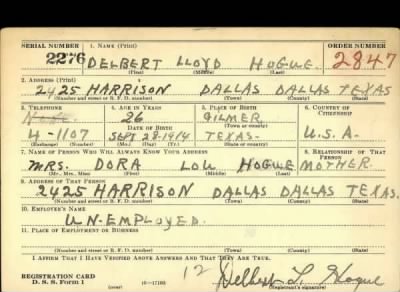 SERIAL NUMBER 1. NAME (Print) ORDER NUMBER
2276 DELBERT LLOYD HOGUE 2847
(First) (Middle) (Last)
2. ADDRESS (Print)
2425 HARRISON DALLAS DALLAS TEXAS
(Number and street or R. F. D. number) (Town) (County) (State)
3. TELEPHONE 4. AGE IN YEARS 5. PLACE OF BIRTH 6. COUNTRY OF CITIZENSHIP
26 GILMER
DATE OF BIRTH (Town or county)
4-1107 SEPT. 28-1914 TEXAS. U.S.A.
(Exchange) (Number) (Mo.) (Day) (Yr.) (State or country)
7. NAME OF PERSON WHO WILL ALWAYS KNOW YOUR ADDRESS 8. RELATIONSHIP OF THAT PERSON
MRS. DORA LOU HOGUE MOTHER.
(Mr., Mrs., Miss) (First) (Middle) (Last)
9. ADDRESS OF THAT PERSON
2425 HARRISON DALLAS DALLAS TEXAS.
(Number and street or R. F. D. number) (Town) (County) (State)
10. EMPLOYER'S NAME
UN-EMPLOYED.
11. PLACE OF EMPLOYMENT OR BUSINESS
(Number and street or R. F. D. number) (Town) (County) (State)
I AFFIRM THAT I HAVE VERIFIED ABOVE ANSWERS AND THAT THEY ARE TRUE.
12 Delbert L. Hogue
REGISTRATION CARD
D. S. S. Form 1 16-17105 (Registrant's signature)
(over)